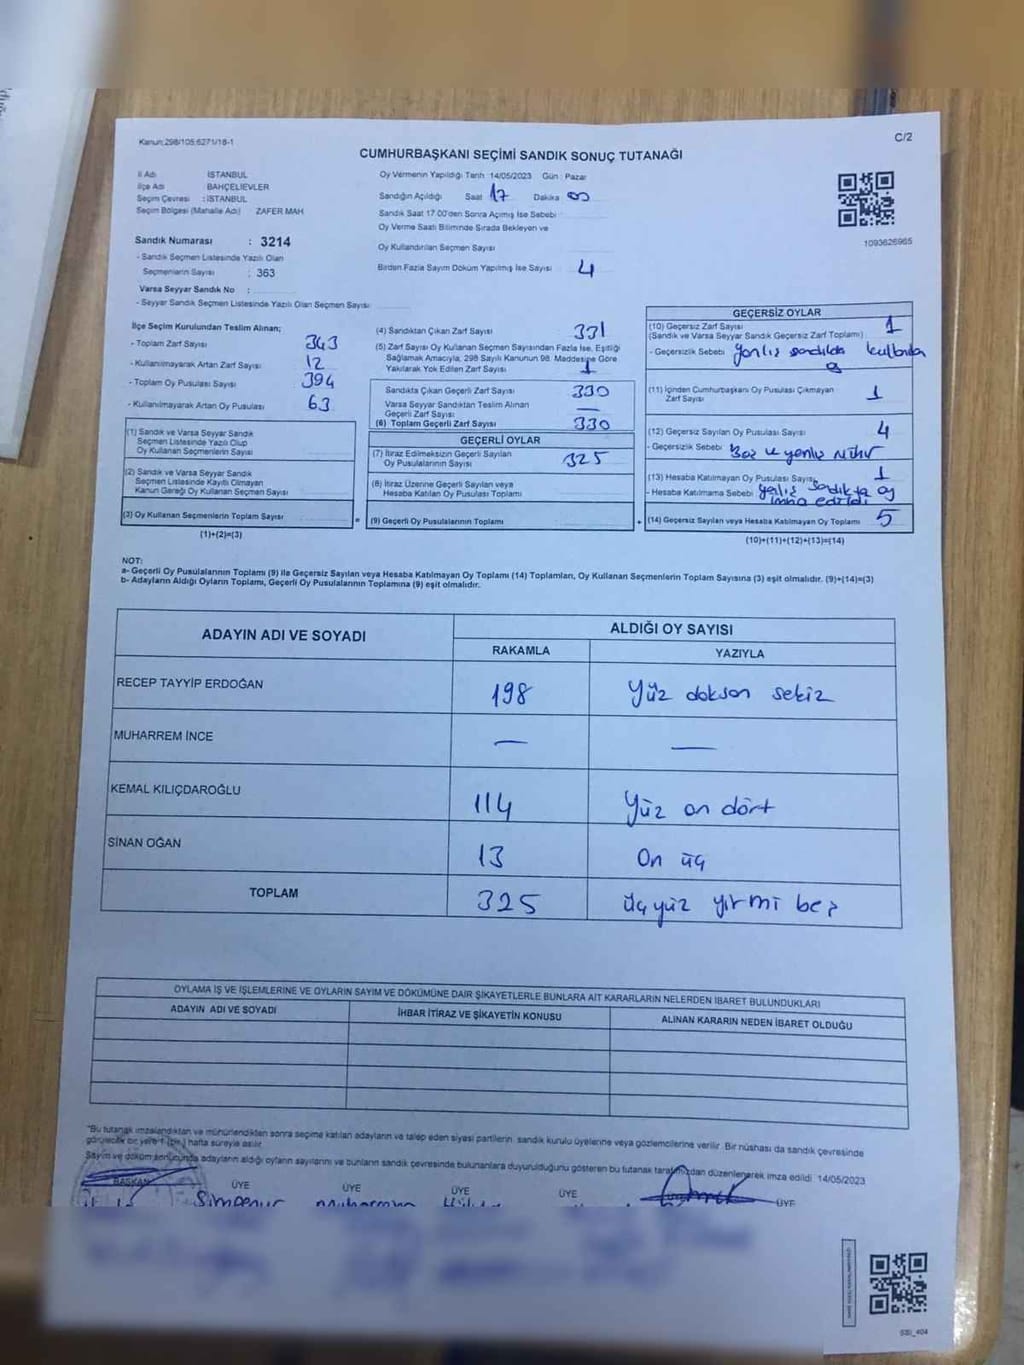 Kanun:298/105;6271/18-1
C/2
CUMHURBAŞKANI SEÇİMİ SANDIK SONUÇ TUTANAĞI
İl Adı İSTANBUL
İlçe Adı BAHÇELİEVLER
Seçim Çevresi : İSTANBUL
Seçim Bölgesi (Mahalle Adı) ZAFER MAH
Oy Vermenin Yapıldığı Tarih :14/05/2023 Gün : Pazar
Sandığın Açıldığı Saat 17 Dakika 00
Sandık Saat 17.00'den Sonra Açımış İse Sebebi
Oy Verme Saati Bitiminde Sırada Bekleyen ve
Oy Kullandırılan Seçmen Sayısı
Birden Fazla Sayım Döküm Yapılmış İse Sayısı 4
1093626965
Sandık Numarası : 3214
- Sandık Seçmen Listesinde Yazılı Olan
Seçmenlerin Sayısı : 363
Varsa Seyyar Sandık No :
- Seyyar Sandık Seçmen Listesinde Yazılı Olan Seçmen Sayısı
İlçe Seçim Kurulundan Teslim Alınan;
- Toplam Zarf Sayısı 343
- Kullanılmayarak Artan Zarf Sayısı 12
- Toplam Oy Pusulası Sayısı 394
- Kullanılmayarak Artan Oy Pusulası 63
(1) Sandık ve Varsa Seyyar Sandık
Seçmen Listesinde Yazılı Olup
Oy Kullanan Seçmenlerin Sayısı
(2) Sandık ve Varsa Seyyar Sandık
Seçmen Listesinde Kayıtlı Olmayan
Kanun Gereği Oy Kullanan Seçmen Sayısı
(3) Oy Kullanan Seçmenlerin Toplam Sayısı
(1)+(2)=(3)
(4) Sandıktan Çıkan Zarf Sayısı 331
(5) Zarf Sayısı Oy Kullanan Seçmen Sayısından Fazla İse, Eşitliği
Sağlamak Amacıyla, 298 Sayılı Kanunun 98. Maddesine Göre
Yakılarak Yok Edilen Zarf Sayısı 1
Sandıkta Çıkan Geçerli Zarf Sayısı 330
Varsa Seyyar Sandıktan Teslim Alınan
Geçerli Zarf Sayısı —
(6) Toplam Geçerli Zarf Sayısı 330
GEÇERLİ OYLAR
(7) İtiraz Edilmeksizin Geçerli Sayılan
Oy Pusulalarının Sayısı 325
(8) İtiraz Üzerine Geçerli Sayılan veya
Hesaba Katılan Oy Pusulası Toplamı
= (9) Geçerli Oy Pusulalarının Toplamı
GEÇERSİZ OYLAR
(10) Geçersiz Zarf Sayısı 1
(Sandık ve Varsa Seyyar Sandık Geçersiz Zarf Toplamı)
- Geçersizlik Sebebi yanlış sandıkda kullanılan
oy
(11) İçinden Cumhurbaşkanı Oy Pusulası Çıkmayan
Zarf Sayısı 1
(12) Geçersiz Sayılan Oy Pusulası Sayısı 4
- Geçersizlik Sebebi Boş ve yanlış Mühür
(13) Hesaba Katılmayan Oy Pusulası Sayısı 1
- Hesaba Katılmama Sebebi sandıkta oy
imha edildi
+ (14) Geçersiz Sayılan veya Hesaba Katılmayan Oy Toplamı 5
(10)+(11)+(12)+(13)=(14)
NOT:
a- Geçerli Oy Pusulalarının Toplamı (9) ile Geçersiz Sayılan veya Hesaba Katılmayan Oy Toplamı (14) Toplamları, Oy Kullanan Seçmenlerin Toplam Sayısına (3) eşit olmalıdır. (9)+(14)=(3)
b- Adayların Aldığı Oyların Toplamı, Geçerli Oy Pusulalarının Toplamına (9) eşit olmalıdır.
ADAYIN ADI VE SOYADI ALDIĞI OY SAYISI
RAKAMLA YAZIYLA
RECEP TAYYİP ERDOĞAN 198 Yüz doksan sekiz
MUHARREM İNCE — —
KEMAL KILIÇDAROĞLU 114 Yüz on dört
SİNAN OĞAN 13 On üç
TOPLAM 325 üçyüz yirmi beş
OYLAMA İŞ VE İŞLEMLERİNE VE OYLARIN SAYIM VE DÖKÜMÜNE DAİR ŞİKAYETLERLE BUNLARA AİT KARARLARIN NELERDEN İBARET BULUNDUKLARI
ADAYIN ADI VE SOYADI İHBAR İTİRAZ VE ŞİKAYETİN KONUSU ALINAN KARARIN NEDEN İBARET OLDUĞU
"Bu tutanak imzalandıktan ve mühürlendikten sonra seçime katılan adayların ve talep eden siyasi partilerin sandık kurulu üyelerine veya gözlemcilerine verilir. Bir nüshası da sandık çevresinde
görülecek bir yere 1 (bir) hafta süreyle asılır.
Sayım ve döküm sonucunda adayların aldığı oyların sayılarını ve bunların sandık çevresinde bulunanlara duyurulduğunu gösteren bu tutanak tarafımızdan düzenlenerek imza edildi 14/05/2023
BAŞKAN ÜYE ÜYE ÜYE ÜYE ÜYE
SSI_404